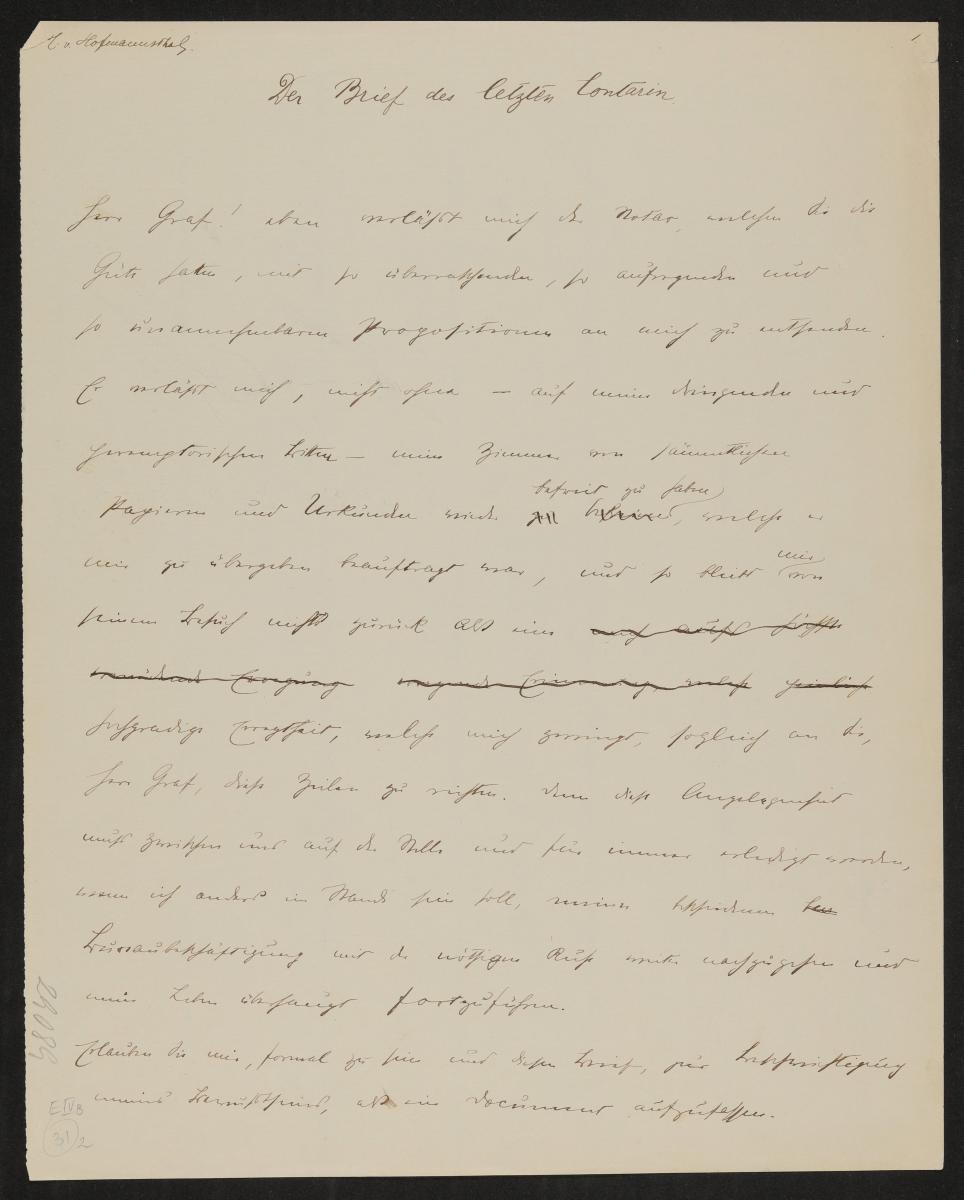 H. v. Hofmannsthal.
1
Der Brief des letzten Contarin.
Herr Graf! eben verläßt mich der Notar, welchen Sie die
Güte hatten, mit so überraschenden, so aufregenden und
so unannehmbaren Propositionen an mich zu entsenden.
Er verläßt mich, nicht ohne – auf meine dringenden und
peremptorischen Bitten – mein Zimmer von sämmtlichen
befreit zu haben
Papieren und Urkunden wieder, welche er
mir zu übergeben beauftragt war, und so bleibt mir von
seinem Besuch nichts zurück als eine auf's höchste
Erregung Erinnerung, welche peinliche
hochgradige Erregtheit, welche mich zwingt, sogleich an Sie,
Herr Graf, diese Zeilen zu richten. Denn diese Angelegenheit
muß zwischen uns auf der Stelle und für immer erledigt werden,
wenn ich anders im Stande sein soll, meiner bescheidenen
Bureaubeschäftigung mit der nöthigen Ruhe weiter nachzugehen und
mein Leben überhaupt fortzuführen.
Erlauben Sie mir, formal zu sein und diesen Brief, zur Beschwichtigung
meines Bewußtseins, als ein Document aufzufassen.
24085
E IV B
31
2